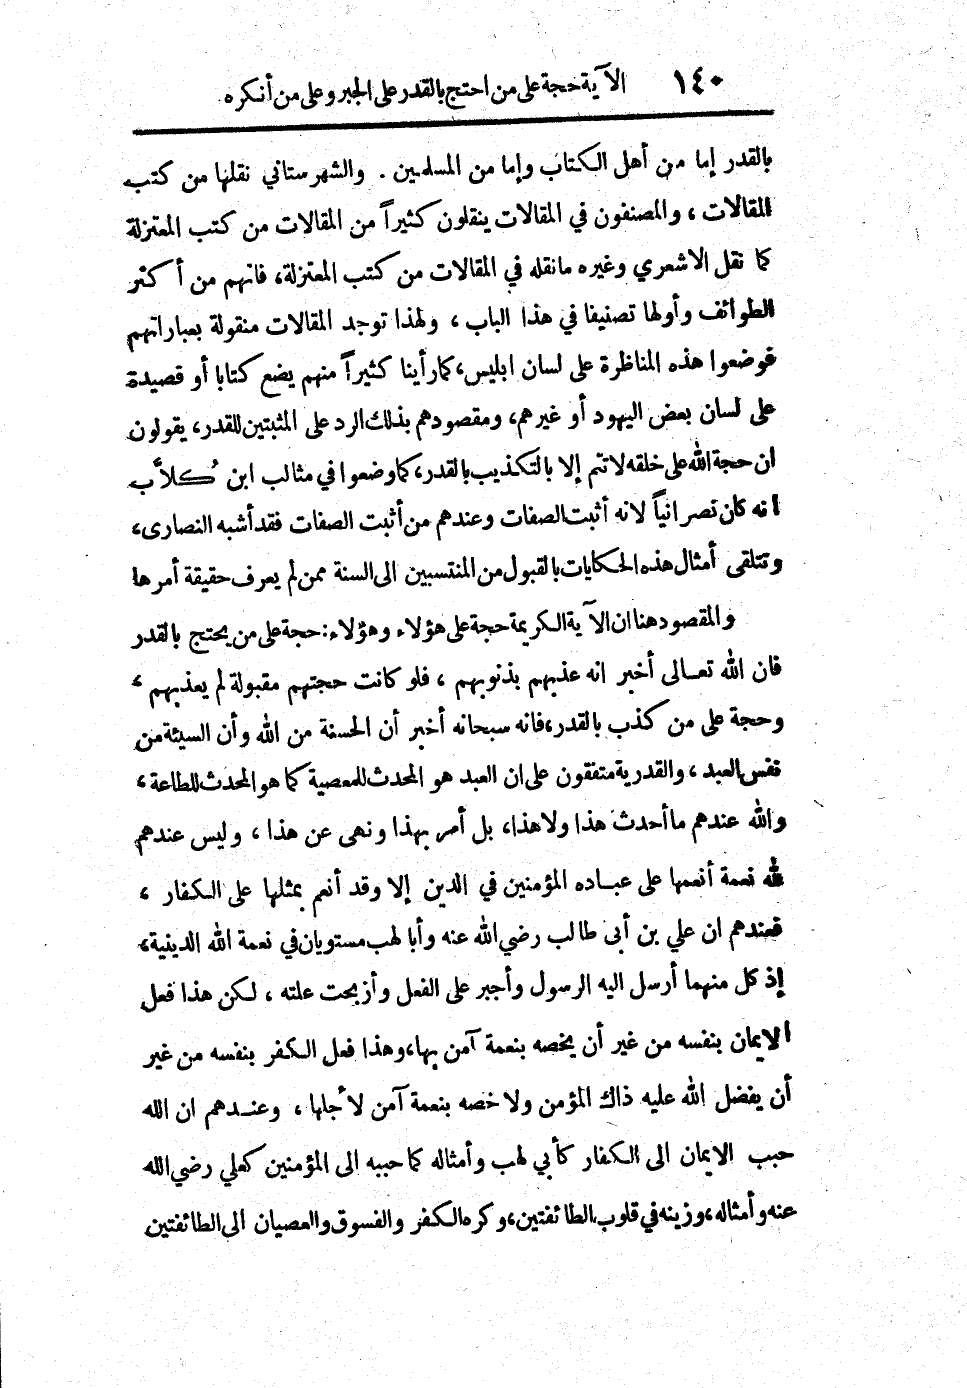 ١٤٠ الآية حجة على من احتج بالقدر على الجبر وعلى من أنكره
بالقدر إما من أهل الكتاب وإما من المسلمين . والشهرستاني نقلها من كتب
المقالات ، والمصنفون في المقالات ينقلون كثيراً من المقالات من كتب المعتزلة
كما نقل الاشعري وغيره مانقله في المقالات من كتب المعتزلة، فانهم من أكثر
الطوائف وأولها تصنيفا في هذا الباب ، ولهذا توجد المقالات منقولة بعباراتهم
فوضعوا هذه المناظرة على لسان ابليس، كما رأينا كثيراً منهم يضع كتابا أو قصيدة
على لسان بعض اليهود أو غيرهم، ومقصودهم بذلك الرد على المثبتين للقدر، يقولون
ان حجة الله على خلقه لا تتم إلا بالتكذيب بالقدر، كما وضعوا في مثالب ابن كُلاَّب
انه كان نصرانياً لانه أثبت الصفات وعندهم من أثبت الصفات فقد أشبه النصارى،
وتتلقى أمثال هذه الحكايات بالقبول من المنتسبين الى السنة ممن لم يعرف حقيقة أمرها
والمقصود هنا ان الآية الكريمة حجة على هؤلاء وهؤلاء: حجة على من يحتج بالقدر
فان الله تعالى أخبر انه عذبهم بذنوبهم ، فلو كانت حجتهم مقبولة لم يعذبهم ،
وحجة على من كذب بالقدر، فانه سبحانه أخبر أن الحسنة من الله وأن السيئة من
نفس العبد ، والقدرية متفقون على ان العبد هو المحدث للمعصية كما هو المحدث للطاعة ،
والله عندهم ما أحدث هذا ولا هذا، بل أمر بهذا ونهى عن هذا ، وليس عندهم
لله نعمة أنعمها على عباده المؤمنين في الدين إلا وقد أنعم بمثلها على الكفار ،
فعندهم ان علي بن أبى طالب رضي الله عنه وأبا لهب مستويان في نعمة الله الدينية،
إذ كل منهما أرسل اليه الرسول وأجبر على الفعل وأزيحت علته ، لكن هذا فعل
الايمان بنفسه من غير أن يخصه بنعمة آمن بها، وهذا فعل الكفر بنفسه من غير
أن يفضل الله عليه ذاك المؤمن ولا خصه بنعمة آمن لأجلها ، وعندهم ان الله
حبب الايمان الى الكفار كأبي لهب وأمثاله كما حببه الى المؤمنين كعلي رضي الله
عنه وأمثاله، وزينه في قلوب الطائفتين، وكره الكفر والفسوق والعصيان الى الطائفتين